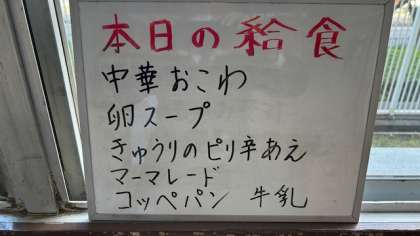 本日の給食
中華おこわ
卵スープ
きゅうりのピリ辛あえ
マーマレード
コッペパン 牛乳